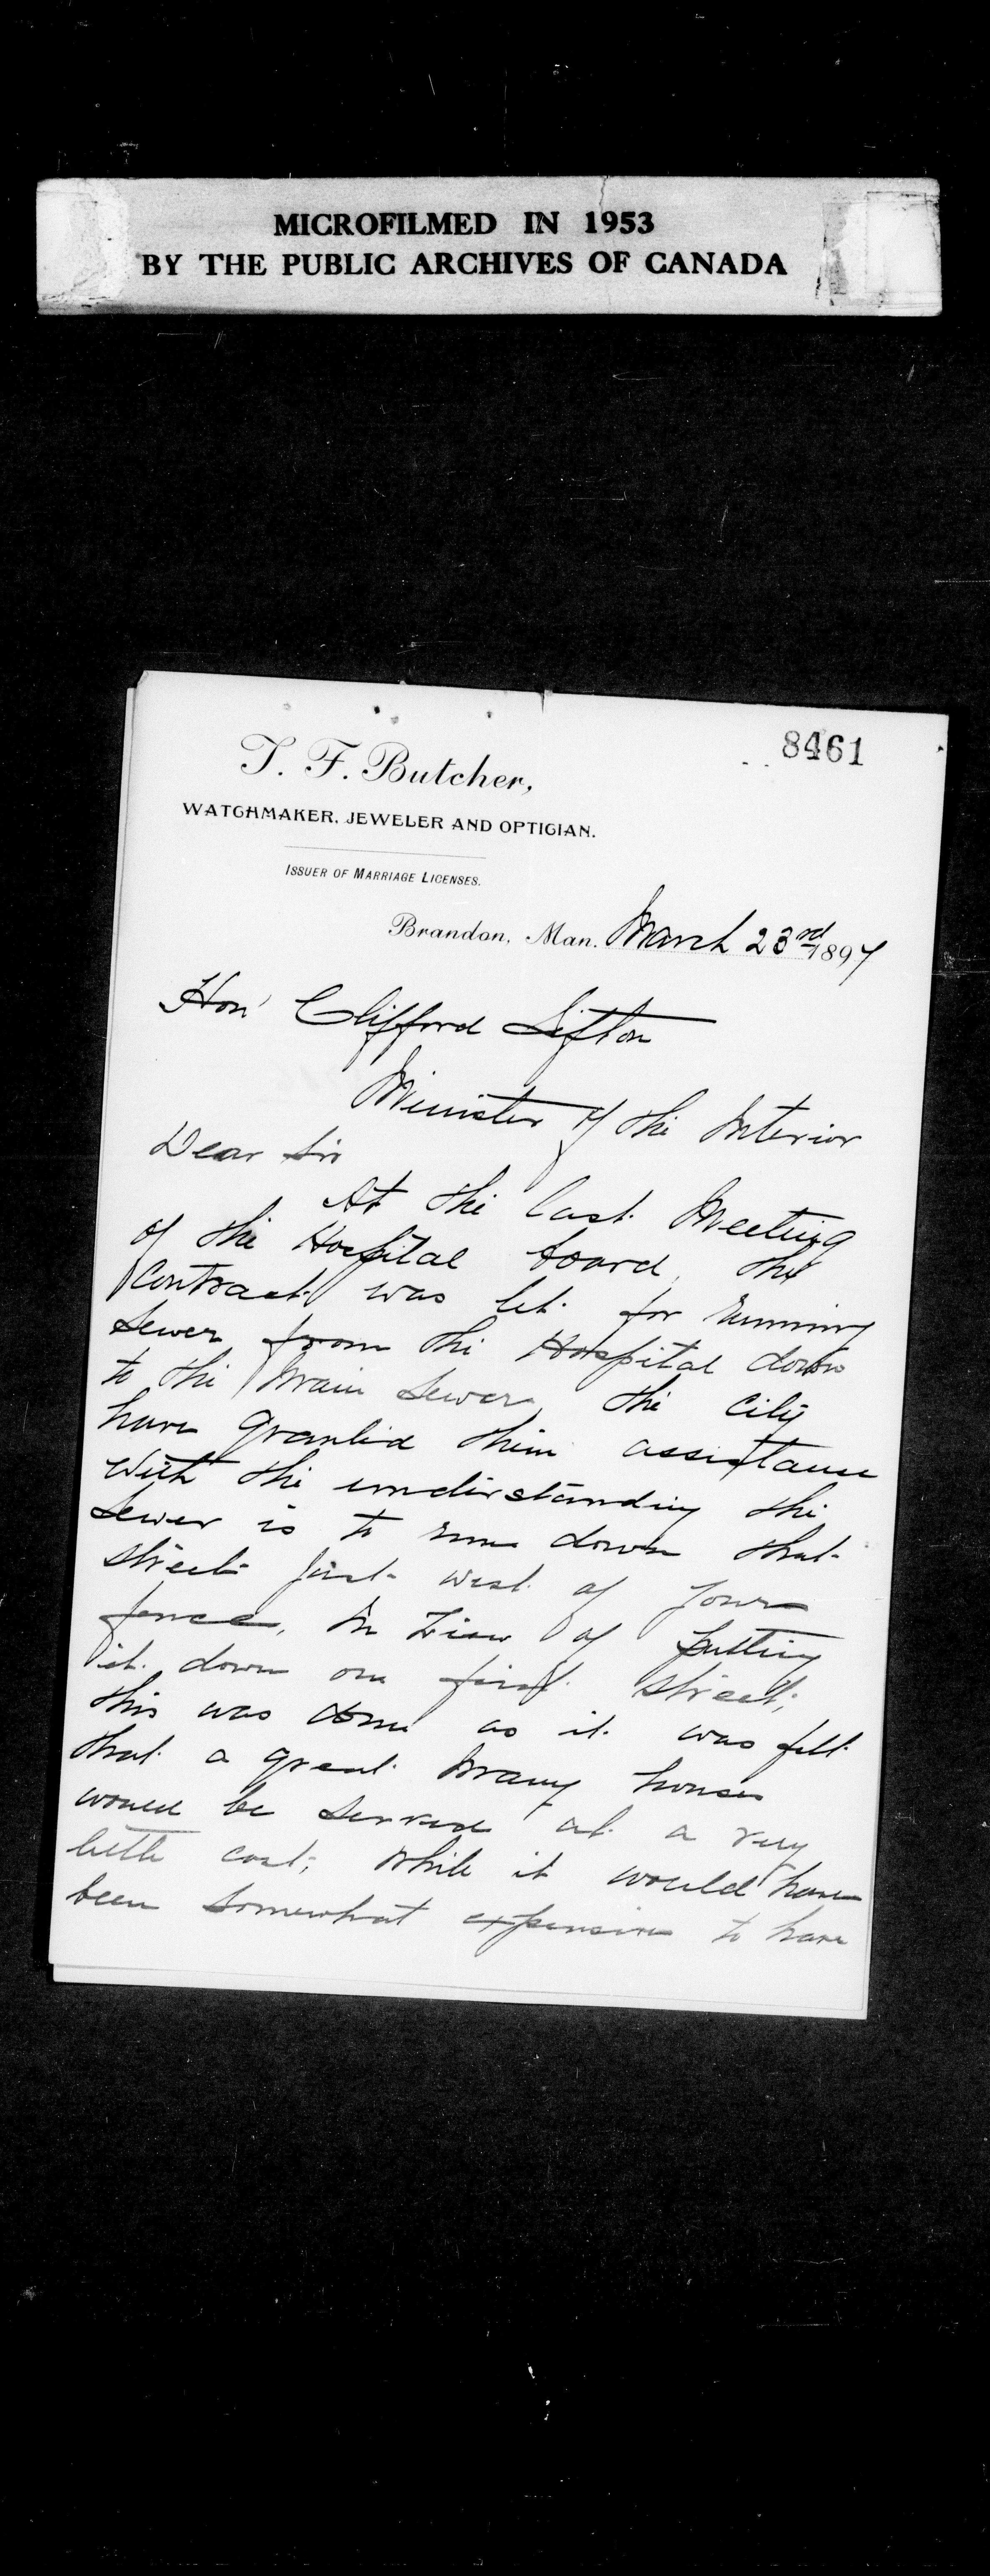 MICROFILMED IN 1953
BY THE PUBLIC ARCHIVES OF CANADA
8461
T. F. Butcher,
WATCHMAKER, JEWELER AND OPTICIAN.
ISSUER OF MARRIAGE LICENSES.
Brandon, Man. March 23rd 1897
Hon' Clifford Sifton
Minister of the Interior
Dear Sir
At the last Meeting
of the Hospital board, the
Contract was let for running
Sewer from the Hospital down
to the Main Sewer, the City
have granted them assistance
with the understanding the
Sewer is to run down that
street just west of your
fence, in view of putting
it down on first street,
this was done as it was felt
that a great many houses
would be served at a very
little cost, while it would have
been somewhat expensive to have